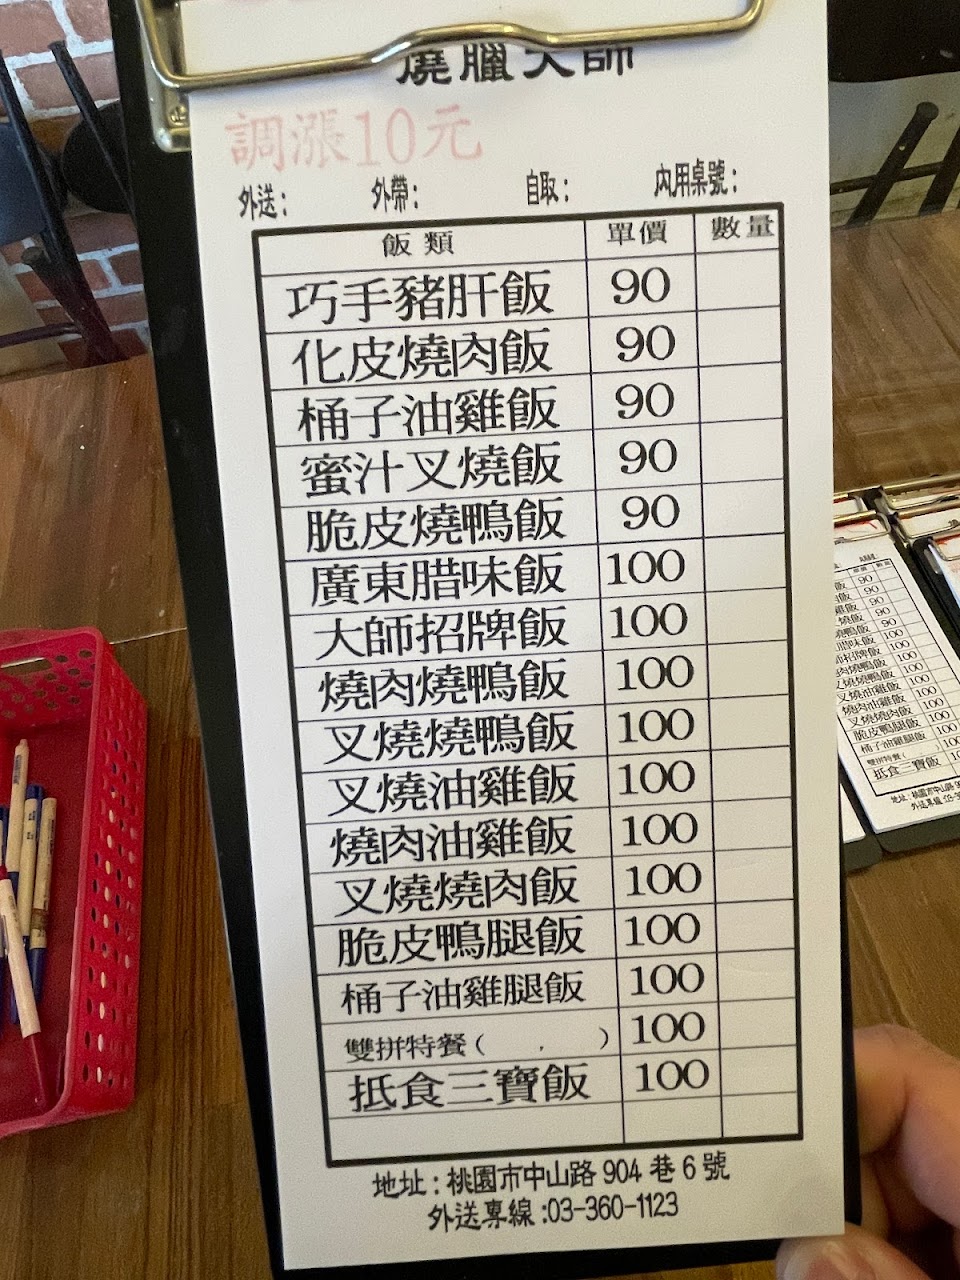 燒臘大師
調漲10元
外送： 外帶： 自取： 內用桌號：
飯類 單價 數量
巧手豬肝飯 90
化皮燒肉飯 90
桶子油雞飯 90
蜜汁叉燒飯 90
脆皮燒鴨飯 90
廣東腊味飯 100
大師招牌飯 100
燒肉燒鴨飯 100
叉燒燒鴨飯 100
叉燒油雞飯 100
燒肉油雞飯 100
叉燒燒肉飯 100
脆皮鴨腿飯 100
桶子油雞腿飯 100
雙拼特餐( , ) 100
抵食三寶飯 100
地址：桃園市中山路 904 巷 6 號
外送專線:03-360-1123